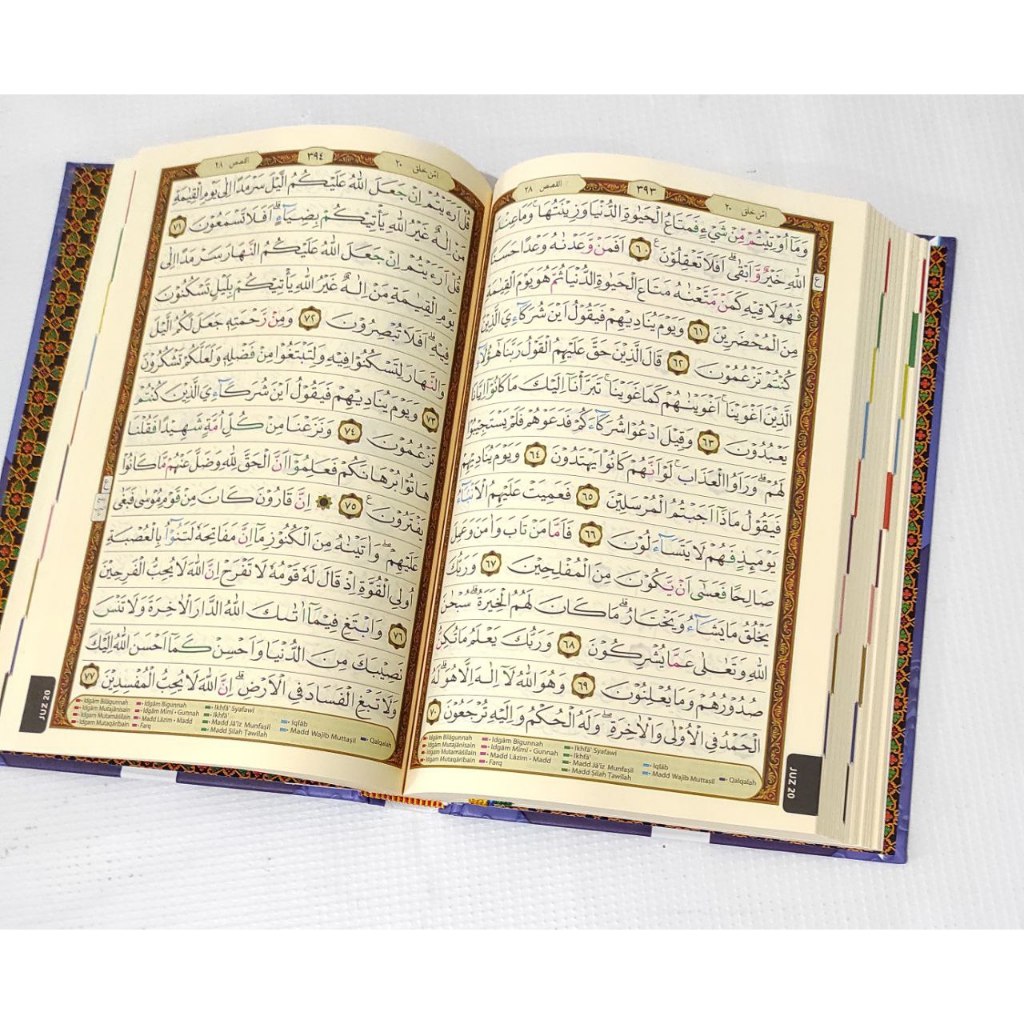 امّن خلق ٢٠
٣٩٣
القصص ٢٨
وَمَآ اُوْتِيْتُمْ مِّنْ شَيْءٍ فَمَتَاعُ الْحَيٰوةِ الدُّنْيَا وَزِيْنَتُهَا ۚ وَمَا عِنْدَ
اللّٰهِ خَيْرٌ وَّاَبْقٰىۗ اَفَلَا تَعْقِلُوْنَ ࣖ ٦٠ اَفَمَنْ وَّعَدْنٰهُ وَعْدًا حَسَنًا
فَهُوَ لَاقِيْهِ كَمَنْ مَّتَّعْنٰهُ مَتَاعَ الْحَيٰوةِ الدُّنْيَا ثُمَّ هُوَ يَوْمَ الْقِيٰمَةِ
مِنَ الْمُحْضَرِيْنَ ٦١ وَيَوْمَ يُنَادِيْهِمْ فَيَقُوْلُ اَيْنَ شُرَكَاۤءِيَ الَّذِيْنَ
كُنْتُمْ تَزْعُمُوْنَ ٦٢ قَالَ الَّذِيْنَ حَقَّ عَلَيْهِمُ الْقَوْلُ رَبَّنَا هٰٓؤُلَاۤءِ
الَّذِيْنَ اَغْوَيْنَاۚ اَغْوَيْنٰهُمْ كَمَا غَوَيْنَاۚ تَبَرَّأْنَآ اِلَيْكَ مَا كَانُوْٓا اِيَّانَا
يَعْبُدُوْنَ ٦٣ وَقِيْلَ ادْعُوْا شُرَكَاۤءَكُمْ فَدَعَوْهُمْ فَلَمْ يَسْتَجِيْبُوْا
لَهُمْ ۗ وَرَاَوُا الْعَذَابَۚ لَوْ اَنَّهُمْ كَانُوْا يَهْتَدُوْنَ ٦٤ وَيَوْمَ يُنَادِيْهِمْ
فَيَقُوْلُ مَاذَآ اَجَبْتُمُ الْمُرْسَلِيْنَ ٦٥ فَعَمِيَتْ عَلَيْهِمُ الْاَنْۢبَاۤءُ
يَوْمَىِٕذٍ فَهُمْ لَا يَتَسَاۤءَلُوْنَ ٦٦ فَاَمَّا مَنْ تَابَ وَاٰمَنَ وَعَمِلَ
صَالِحًا فَعَسٰٓى اَنْ يَّكُوْنَ مِنَ الْمُفْلِحِيْنَ ٦٧ وَرَبُّكَ
يَخْلُقُ مَا يَشَاۤءُ وَيَخْتَارُ ۗ مَا كَانَ لَهُمُ الْخِيَرَةُ ۗ سُبْحٰنَ
اللّٰهِ وَتَعٰلٰى عَمَّا يُشْرِكُوْنَ ٦٨ وَرَبُّكَ يَعْلَمُ مَا تُكِنُّ
صُدُوْرُهُمْ وَمَا يُعْلِنُوْنَ ٦٩ وَهُوَ اللّٰهُ لَآ اِلٰهَ اِلَّا هُوَ ۗ لَهُ
الْحَمْدُ فِى الْاُوْلٰى وَالْاٰخِرَةِ ۖ وَلَهُ الْحُكْمُ وَاِلَيْهِ تُرْجَعُوْنَ ٧٠
Idgām Bilāgunnah Idgām Bigunnah Ikhfā' Syafawi
Idgam Mutajānisain Idgām Mīmī - Gunnah Ikhfā' Iqlāb
Idgam Mutamāṡilain Madd Lāzim - Madd Madd Jā'iz Munfaṣil Madd Wajib Muttaṣil Qalqalah
Idgam Mutaqāribain Farq Madd Ṣilah Ṭawīlah
JUZ 20
امّن خلق ٢٠
٣٩٤
القصص ٢٨
قُلْ اَرَءَيْتُمْ اِنْ جَعَلَ اللّٰهُ عَلَيْكُمُ الَّيْلَ سَرْمَدًا اِلٰى يَوْمِ الْقِيٰمَةِ
مَنْ اِلٰهٌ غَيْرُ اللّٰهِ يَأْتِيْكُمْ بِضِيَاۤءٍ ۗ اَفَلَا تَسْمَعُوْنَ ٧١
قُلْ اَرَءَيْتُمْ اِنْ جَعَلَ اللّٰهُ عَلَيْكُمُ النَّهَارَ سَرْمَدًا اِلٰى
يَوْمِ الْقِيٰمَةِ مَنْ اِلٰهٌ غَيْرُ اللّٰهِ يَأْتِيْكُمْ بِلَيْلٍ تَسْكُنُوْنَ
فِيْهِ ۗ اَفَلَا تُبْصِرُوْنَ ٧٢ وَمِنْ رَّحْمَتِهٖ جَعَلَ لَكُمُ الَّيْلَ
وَالنَّهَارَ لِتَسْكُنُوْا فِيْهِ وَلِتَبْتَغُوْا مِنْ فَضْلِهٖ وَلَعَلَّكُمْ تَشْكُرُوْنَ
٧٣ وَيَوْمَ يُنَادِيْهِمْ فَيَقُوْلُ اَيْنَ شُرَكَاۤءِيَ الَّذِيْنَ كُنْتُمْ
تَزْعُمُوْنَ ٧٤ وَنَزَعْنَا مِنْ كُلِّ اُمَّةٍ شَهِيْدًا فَقُلْنَا
هَاتُوْا بُرْهَانَكُمْ فَعَلِمُوْٓا اَنَّ الْحَقَّ لِلّٰهِ وَضَلَّ عَنْهُمْ مَّا كَانُوْا
يَفْتَرُوْنَ ࣖ ٧٥ ۞ اِنَّ قَارُوْنَ كَانَ مِنْ قَوْمِ مُوْسٰى فَبَغٰى
عَلَيْهِمْ ۖ وَاٰتَيْنٰهُ مِنَ الْكُنُوْزِ مَآ اِنَّ مَفَاتِحَهٗ لَتَنُوْۤاُ بِالْعُصْبَةِ
اُولِى الْقُوَّةِ اِذْ قَالَ لَهٗ قَوْمُهٗ لَا تَفْرَحْ اِنَّ اللّٰهَ لَا يُحِبُّ الْفَرِحِيْنَ
٧٦ وَابْتَغِ فِيْمَآ اٰتٰىكَ اللّٰهُ الدَّارَ الْاٰخِرَةَ وَلَا تَنْسَ
نَصِيْبَكَ مِنَ الدُّنْيَا وَاَحْسِنْ كَمَآ اَحْسَنَ اللّٰهُ اِلَيْكَ
وَلَا تَبْغِ الْفَسَادَ فِى الْاَرْضِ ۗ اِنَّ اللّٰهَ لَا يُحِبُّ الْمُفْسِدِيْنَ ٧٧
Idgām Bilāgunnah Idgām Bigunnah Ikhfā' Syafawi
Idgam Mutajānisain Idgām Mīmī - Gunnah Ikhfā' Iqlāb
Idgam Mutamāṡilain Madd Lāzim - Madd Madd Jā'iz Munfaṣil Madd Wajib Muttaṣil Qalqalah
Idgam Mutaqāribain Farq Madd Ṣilah Ṭawīlah
JUZ 20